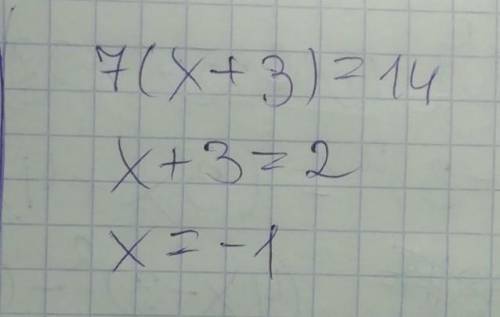 7(x+3)=14
x+3=2
x=-1